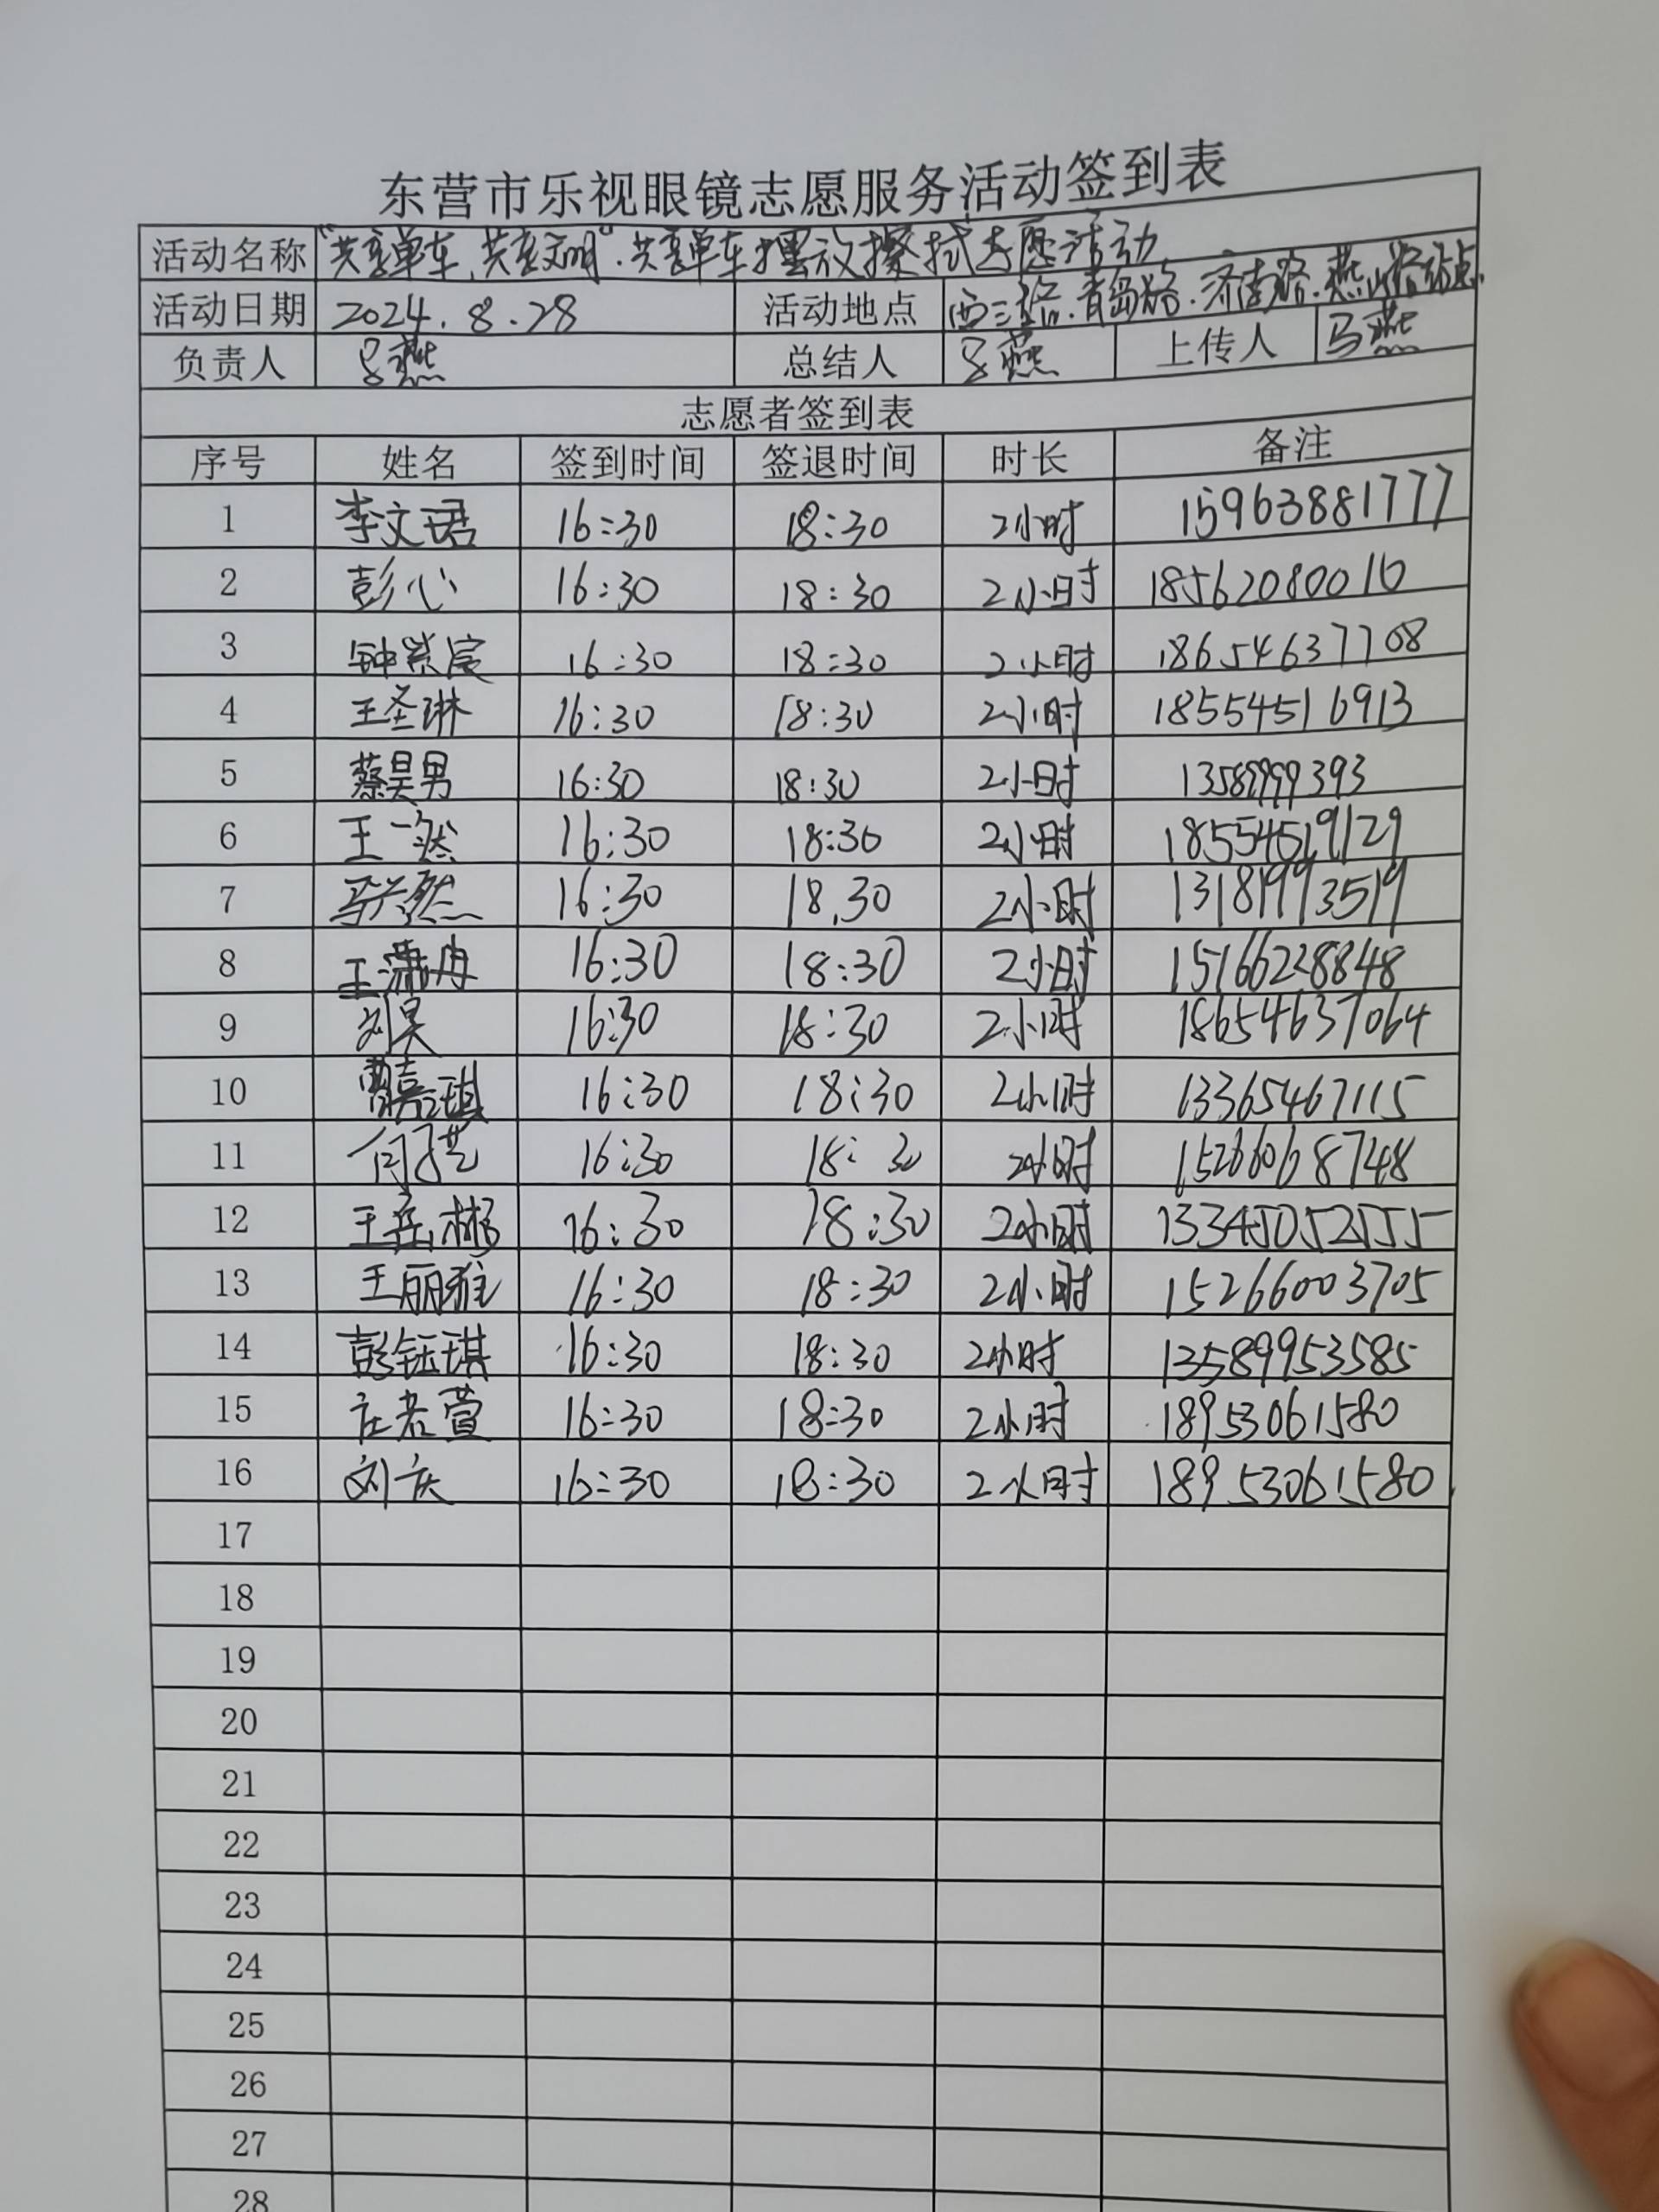 东营市乐视眼镜志愿服务活动签到表
活动名称 "共享单车、共享文明"·共享单车摆放擦拭志愿活动
活动日期 2024.8.28 活动地点 西二路.青岛路.济南路.燕山路站点
负责人 马燕 总结人 马燕 上传人 马燕
志愿者签到表
序号 姓名 签到时间 签退时间 时长 备注
1 李文珺 16:30 18:30 2小时 15963881777
2 彭心 16:30 18:30 2小时 18562080010
3 钟紫宸 16:30 18:30 2小时 18654637708
4 王圣琳 16:30 18:30 2小时 18554516913
5 蔡昊男 16:30 18:30 2小时 13589999393
6 王一然 16:30 18:30 2小时 18554519129
7 16:30 18.30 2小时 13181993519
8 王潇冉 16:30 18:30 2小时 15166228848
9 刘昊 16:30 18:30 2小时 18654637064
10 曹嘉琪 16:30 18:30 2小时 13365467115
11 何子艺 16:30 18:30 2小时 15266068748
12 王岳彬 16:30 18:30 2小时 13345052555
13 王丽雅 16:30 18:30 2小时 15266003705
14 彭钰琪 16:30 18:30 2小时 13589953585
15 庄若萱 16:30 18:30 2小时 18953061580
16 刘庆 16:30 18:30 2小时 18953061580
17
18
19
20
21
22
23
24
25
26
27
28